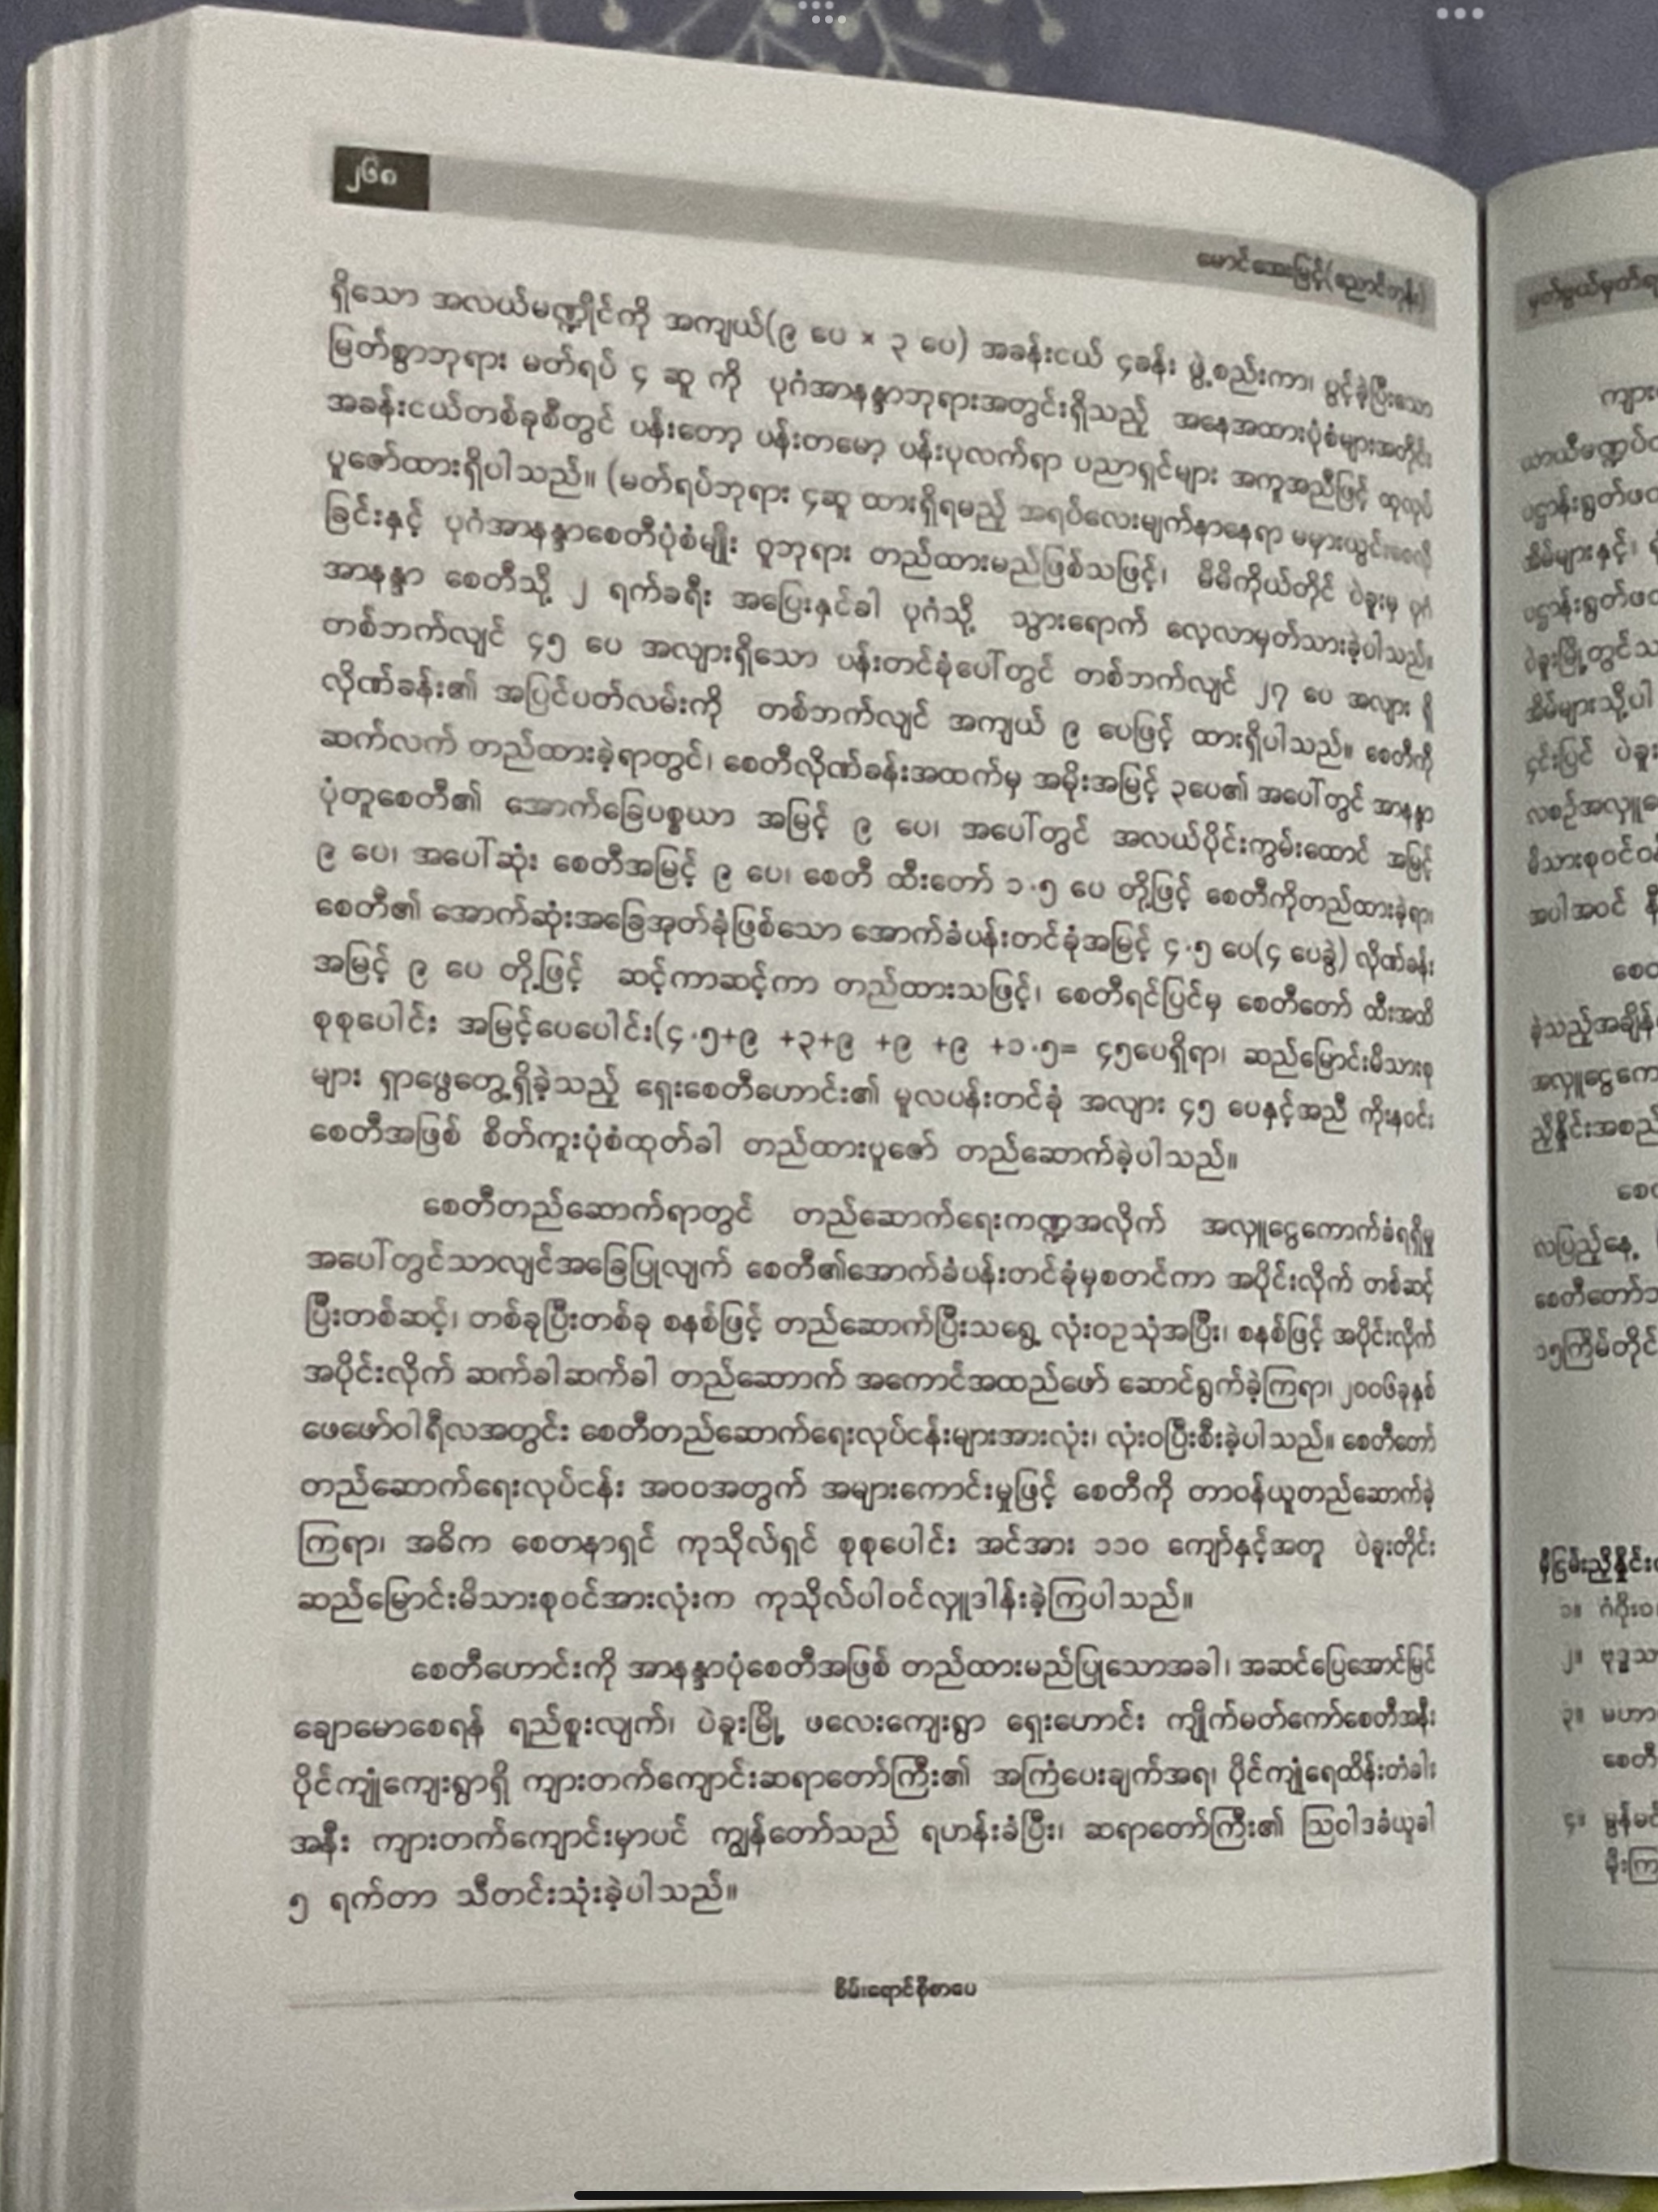 ၂၆၈
မောင်အေးမြင့်(ညောင်တုန်း)
ရှိသော အလယ်မဏ္ဍိုင်ကို အကျယ်(၉ ပေ × ၃ ပေ) အခန်းငယ် ၄ခန်း ဖွဲ့စည်းကာ၊ ပွင့်ခဲ့ပြီးသော
မြတ်စွာဘုရား မတ်ရပ် ၄ ဆူ ကို ပုဂံအာနန္ဒာဘုရားအတွင်းရှိသည့် အနေအထားပုံစံများအတိုင်း
အခန်းငယ်တစ်ခုစီတွင် ပန်းတော့ ပန်းတမော့ ပန်းပုလက်ရာ ပညာရှင်များ အကူအညီဖြင့် ထုလုပ်
ပူဇော်ထားရှိပါသည်။ (မတ်ရပ်ဘုရား ၄ဆူ ထားရှိရမည့် အရပ်လေးမျက်နာနေရာ မမှားယွင်းစေလို
ခြင်းနှင့် ပုဂံအာနန္ဒာစေတီပုံစံမျိုး ဂူဘုရား တည်ထားမည်ဖြစ်သဖြင့်၊ မိမိကိုယ်တိုင် ပဲခူးမှ ပုဂံ
အာနန္ဒာ စေတီသို့ ၂ ရက်ခရီး အပြေးနှင်ခါ ပုဂံသို့ သွားရောက် လေ့လာမှတ်သားခဲ့ပါသည်။
တစ်ဘက်လျင် ၄၅ ပေ အလျားရှိသော ပန်းတင်ခုံပေါ်တွင် တစ်ဘက်လျင် ၂၇ ပေ အလျား ရှိ
လိုဏ်ခန်း၏ အပြင်ပတ်လမ်းကို တစ်ဘက်လျင် အကျယ် ၉ ပေဖြင့် ထားရှိပါသည်။ စေတီကို
ဆက်လက် တည်ထားခဲ့ရာတွင်၊ စေတီလိုဏ်ခန်းအထက်မှ အမိုးအမြင့် ၃ပေ၏ အပေါ်တွင် အာနန္ဒာ
ပုံတူစေတီ၏ အောက်ခြေပစ္စယာ အမြင့် ၉ ပေ၊ အပေါ်တွင် အလယ်ပိုင်းကွမ်းထောင် အမြင့်
၉ ပေ၊ အပေါ်ဆုံး စေတီအမြင့် ၉ ပေ၊ စေတီ ထီးတော် ၁.၅ ပေ တို့ဖြင့် စေတီကိုတည်ထားခဲ့ရာ၊
စေတီ၏ အောက်ဆုံးအခြေအုတ်ခုံဖြစ်သော အောက်ခံပန်းတင်ခုံအမြင့် ၄.၅ ပေ(၄ ပေခွဲ) လိုဏ်ခန်း
အမြင့် ၉ ပေ တို့ဖြင့် ဆင့်ကာဆင့်ကာ တည်ထားသဖြင့်၊ စေတီရင်ပြင်မှ စေတီတော် ထီးအထိ
စုစုပေါင်း အမြင့်ပေပေါင်း(၄.၅+၉ +၃+၉ +၉ +၉ +၁.၅= ၄၅ပေရှိရာ၊ ဆည်မြောင်းမိသားစု
များ ရှာဖွေတွေ့ရှိခဲ့သည့် ရှေးစေတီဟောင်း၏ မူလပန်းတင်ခုံ အလျား ၄၅ ပေနှင့်အညီ ကိုးနဝင်း
စေတီအဖြစ် စိတ်ကူးပုံစံထုတ်ခါ တည်ထားပူဇော် တည်ဆောက်ခဲ့ပါသည်။
စေတီတည်ဆောက်ရာတွင် တည်ဆောက်ရေးကဏ္ဍအလိုက် အလှူငွေကောက်ခံရရှိမှု
အပေါ်တွင်သာလျင်အခြေပြုလျက် စေတီ၏အောက်ခံပန်းတင်ခုံမှစတင်ကာ အပိုင်းလိုက် တစ်ဆင့်
ပြီးတစ်ဆင့်၊ တစ်ခုပြီးတစ်ခု စနစ်ဖြင့် တည်ဆောက်ပြီးသရွေ့ လုံးဝဥသုံအပြီး၊ စနစ်ဖြင့် အပိုင်းလိုက်
အပိုင်းလိုက် ဆက်ခါဆက်ခါ တည်ဆောာက် အကောင်အထည်ဖော် ဆောင်ရွက်ခဲ့ကြရာ၊ ၂၀၀၆ခုနှစ်
ဖေဖော်ဝါရီလအတွင်း စေတီတည်ဆောက်ရေးလုပ်ငန်းများအားလုံး၊ လုံးဝပြီးစီးခဲ့ပါသည်။ စေတီတော်
တည်ဆောက်ရေးလုပ်ငန်း အဝဝအတွက် အများကောင်းမှုဖြင့် စေတီကို တာဝန်ယူတည်ဆောက်ခဲ့
ကြရာ၊ အဓိက စေတနာရှင် ကုသိုလ်ရှင် စုစုပေါင်း အင်အား ၁၁၀ ကျော်နှင့်အတူ ပဲခူးတိုင်း
ဆည်မြောင်းမိသားစုဝင်အားလုံးက ကုသိုလ်ပါဝင်လှူဒါန်းခဲ့ကြပါသည်။
စေတီဟောင်းကို အာနန္ဒာပုံစေတီအဖြစ် တည်ထားမည်ပြုသောအခါ၊ အဆင်ပြေအောင်မြင်
ချောမောစေရန် ရည်စူးလျက်၊ ပဲခူးမြို့ ဖလေးကျေးရွာ ရှေးဟောင်း ကျိုက်မတ်ကော်စေတီအနီး
ပိုင်ကျုံကျေးရွာရှိ ကျားတက်ကျောင်းဆရာတော်ကြီး၏ အကြံပေးချက်အရ၊ ပိုင်ကျုံရေထိန်းတံခါး
အနီး ကျားတက်ကျောင်းမှာပင် ကျွန်တော်သည် ရဟန်းခံပြီး၊ ဆရာတော်ကြီး၏ သြဝါဒခံယူခါ
၅ ရက်တာ သီတင်းသုံးခဲ့ပါသည်။
စိမ်းရောင်စိုစာပေ